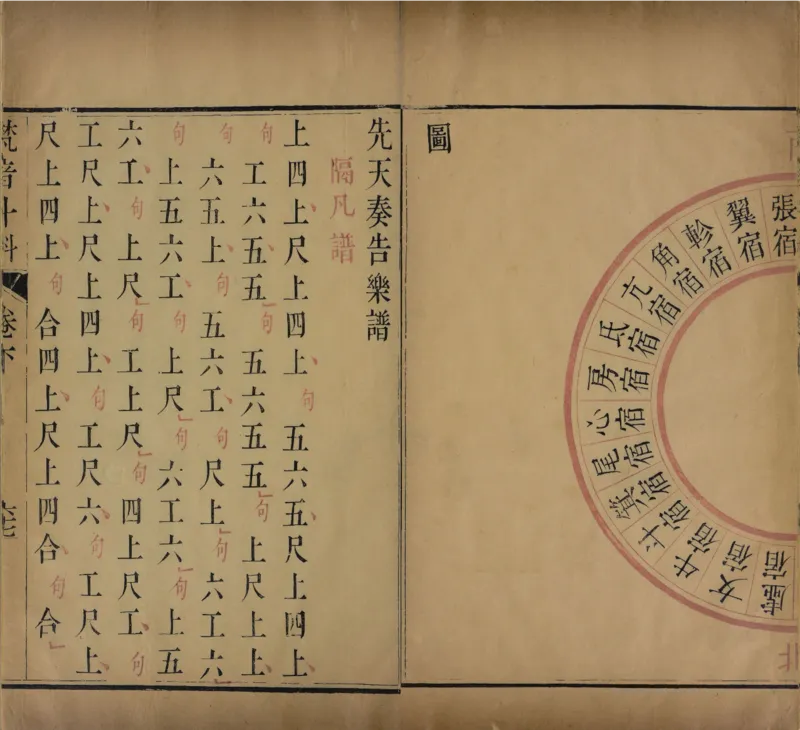 張宿
翼宿
軫宿
角宿
亢宿
氐宿
房宿
心宿
尾宿
箕宿
斗宿
牛宿
女宿
虛宿
圖
先天奏告樂譜
隔凡譜
上四上尺上四上句五六五尺上四上
句工六五五句五六五五句上尺上上
句六五上句五六工句尺上句六工六
句上五六工句上尺句六工六句上五
六工句上尺句工上尺句四上尺工句
工尺上尺上四上句工尺六句工尺上
尺上四上句合四上尺上四合句合
梵音斗科
卷下